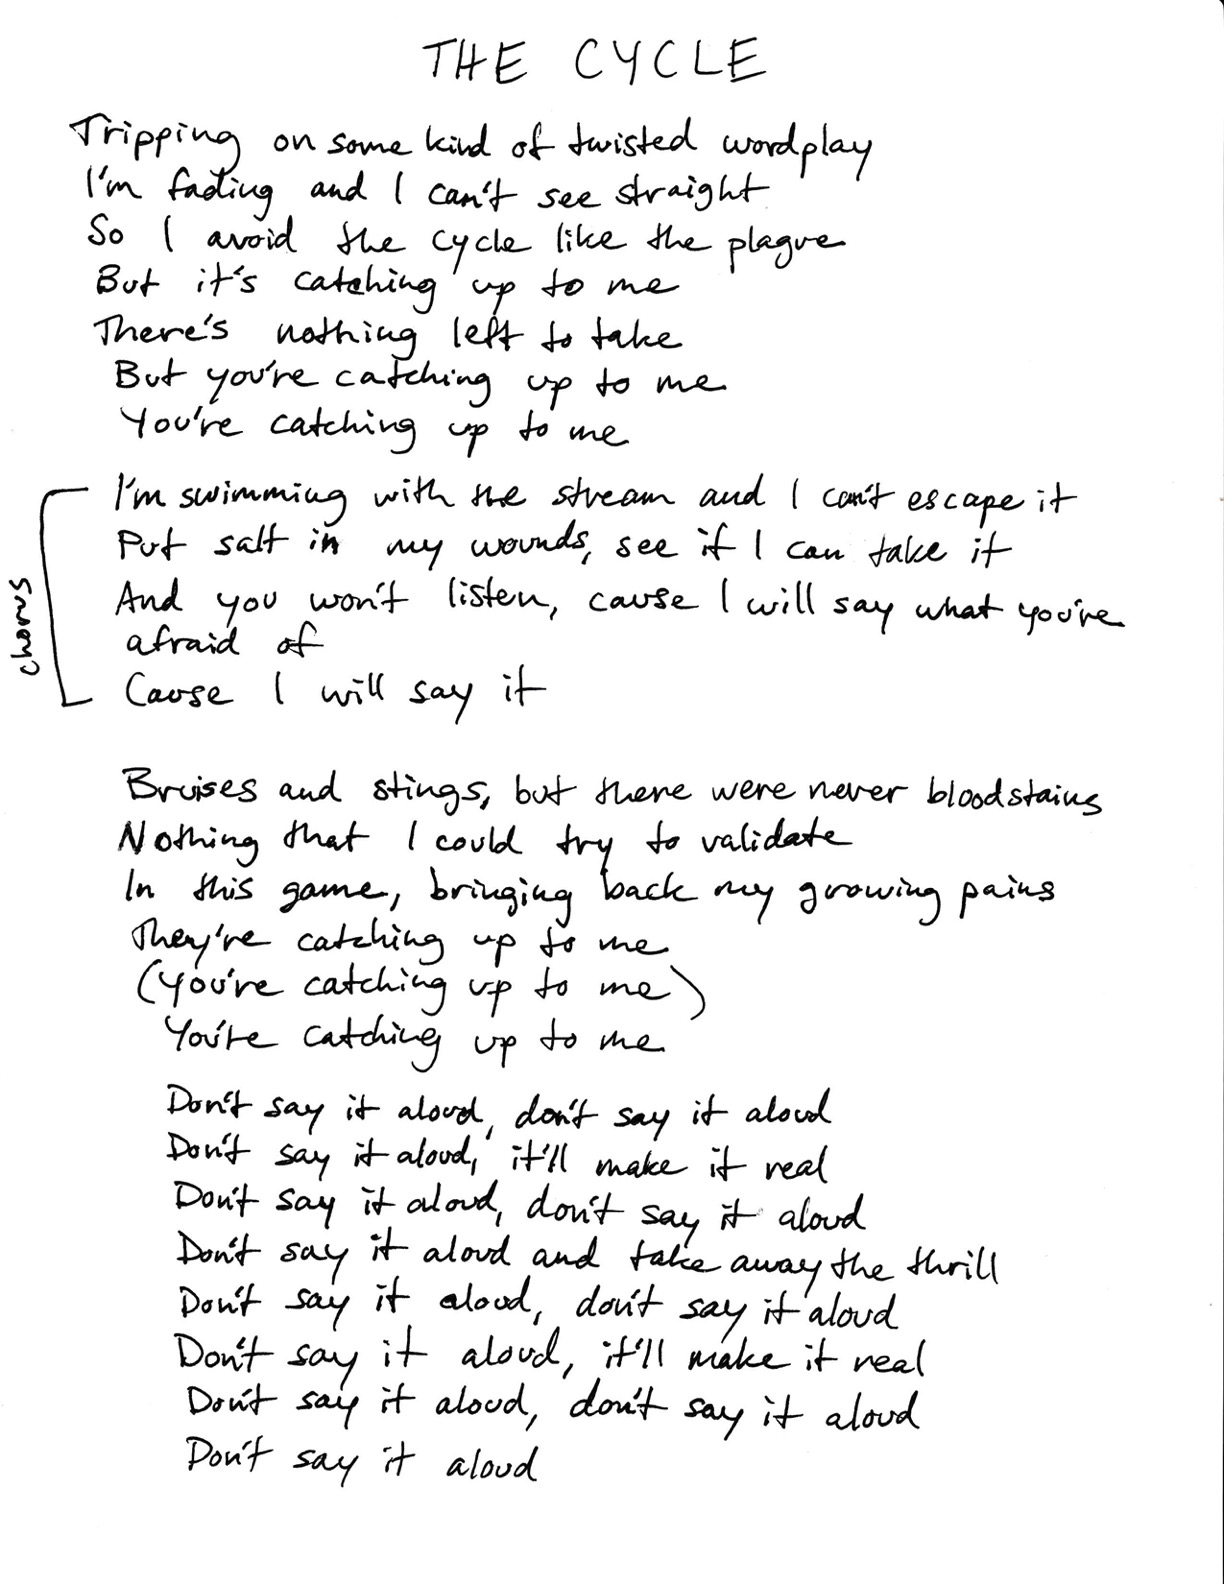 THE CYCLE
Tripping on some kind of twisted wordplay
I'm fading and I can't see straight
So I avoid the cycle like the plague
But it's catching up to me
There's nothing left to take
But you're catching up to me
You're catching up to me
chorus
I'm swimming with the stream and I can't escape it
Put salt in my wounds, see if I can take it
And you won't listen, cause I will say what you're
afraid of
Cause I will say it
Bruises and stings, but there were never bloodstains
Nothing that I could try to validate
In this game, bringing back my growing pains
They're catching up to me
(You're catching up to me)
You're catching up to me
Don't say it aloud, don't say it aloud
Don't say it aloud, it'll make it real
Don't say it aloud, don't say it aloud
Don't say it aloud and take away the thrill
Don't say it aloud, don't say it aloud
Don't say it aloud, it'll make it real
Don't say it aloud, don't say it aloud
Don't say it aloud